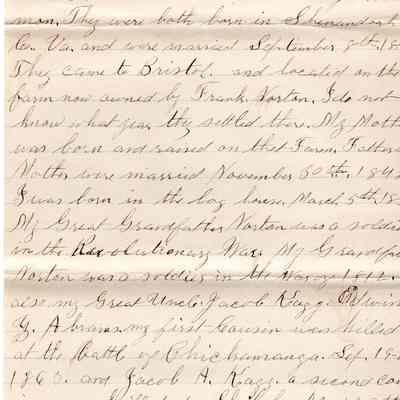 mon. They were both born in Shenandoah
Co. Va. and were married September 8th. 18
They came to Bristol. and located on the
farm now owned by Frank Norton. I do not
know what year they settled there. My Moth
was born and raised on that Farm. Father
Mother were married November 30th. 184
I was born in the log house. March 5th. 18
My Great Grandfather Norton was a soldi
in the Revolutionary War. My Grandfa
Norton was a soldier in the War of 1812.
also my Great Uncle. Jacob Kagy. Edwin
Y. Abrams. my first Cousin was killed
at the battle of Chickamauga. Sep. 19
1863. and Jacob A. Kagy. a second co